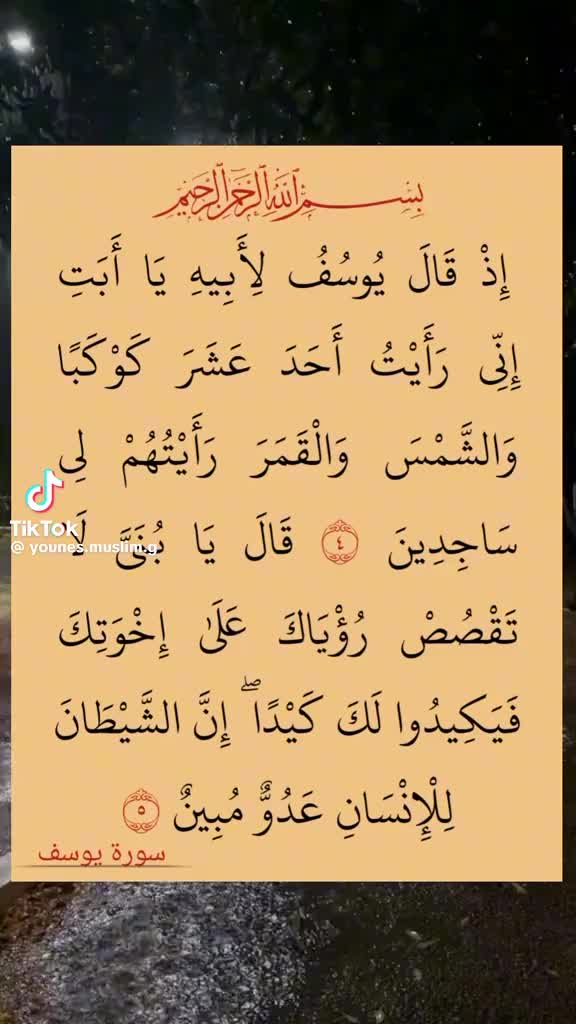 بِسْمِ اللَّهِ الرَّحْمَٰنِ الرَّحِيمِ
إِذْ قَالَ يُوسُفُ لِأَبِيهِ يَا أَبَتِ
إِنِّي رَأَيْتُ أَحَدَ عَشَرَ كَوْكَبًا
وَالشَّمْسَ وَالْقَمَرَ رَأَيْتُهُمْ لِي
سَاجِدِينَ ٤ قَالَ يَا بُنَيَّ لَا
تَقْصُصْ رُؤْيَاكَ عَلَىٰ إِخْوَتِكَ
فَيَكِيدُوا لَكَ كَيْدًا ۖ إِنَّ الشَّيْطَانَ
لِلْإِنْسَانِ عَدُوٌّ مُبِينٌ ٥
سورة يوسف
TikTok
@ younes.muslim.g